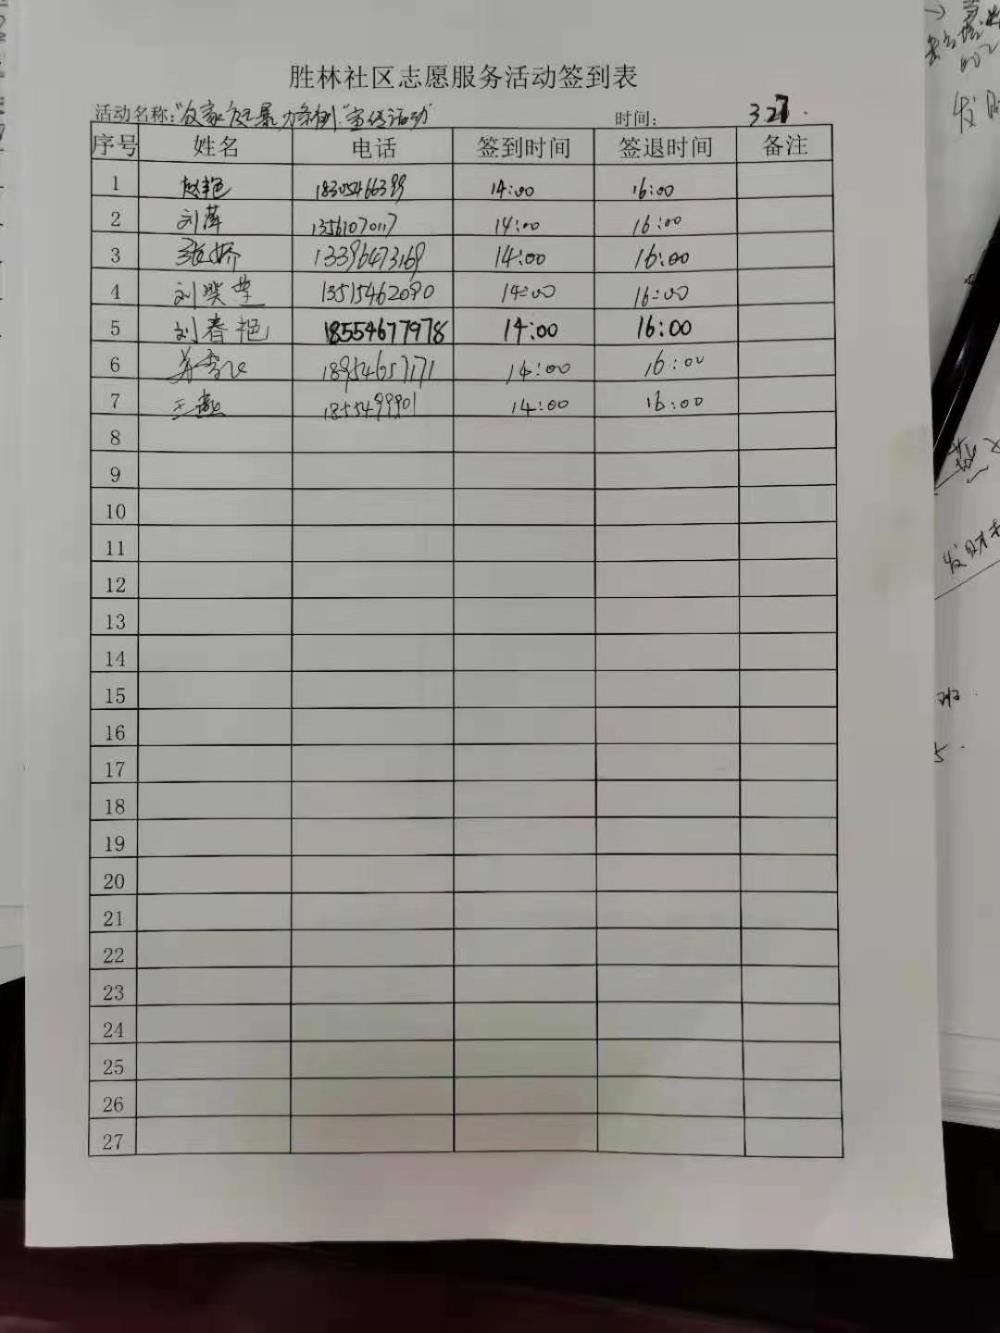 胜林社区志愿服务活动签到表
活动名称:"反家庭暴力条例"宣传活动 时间: 3.27.
序号 姓名 电话 签到时间 签退时间 备注
1 赵艳 18305466399 14:00 16:00
2 刘萍 13561070117 14:00 16:00
3 张娇 13396473169 14:00 16:00
4 刘 13515462090 14:00 16:00
5 刘春艳 18554677978 14:00 16:00
6 18954657171 14:00 16:00
7 王 1855499901 14:00 16:00
8
9
10
11
12
13
14
15
16
17
18
19
20
21
22
23
24
25
26
27